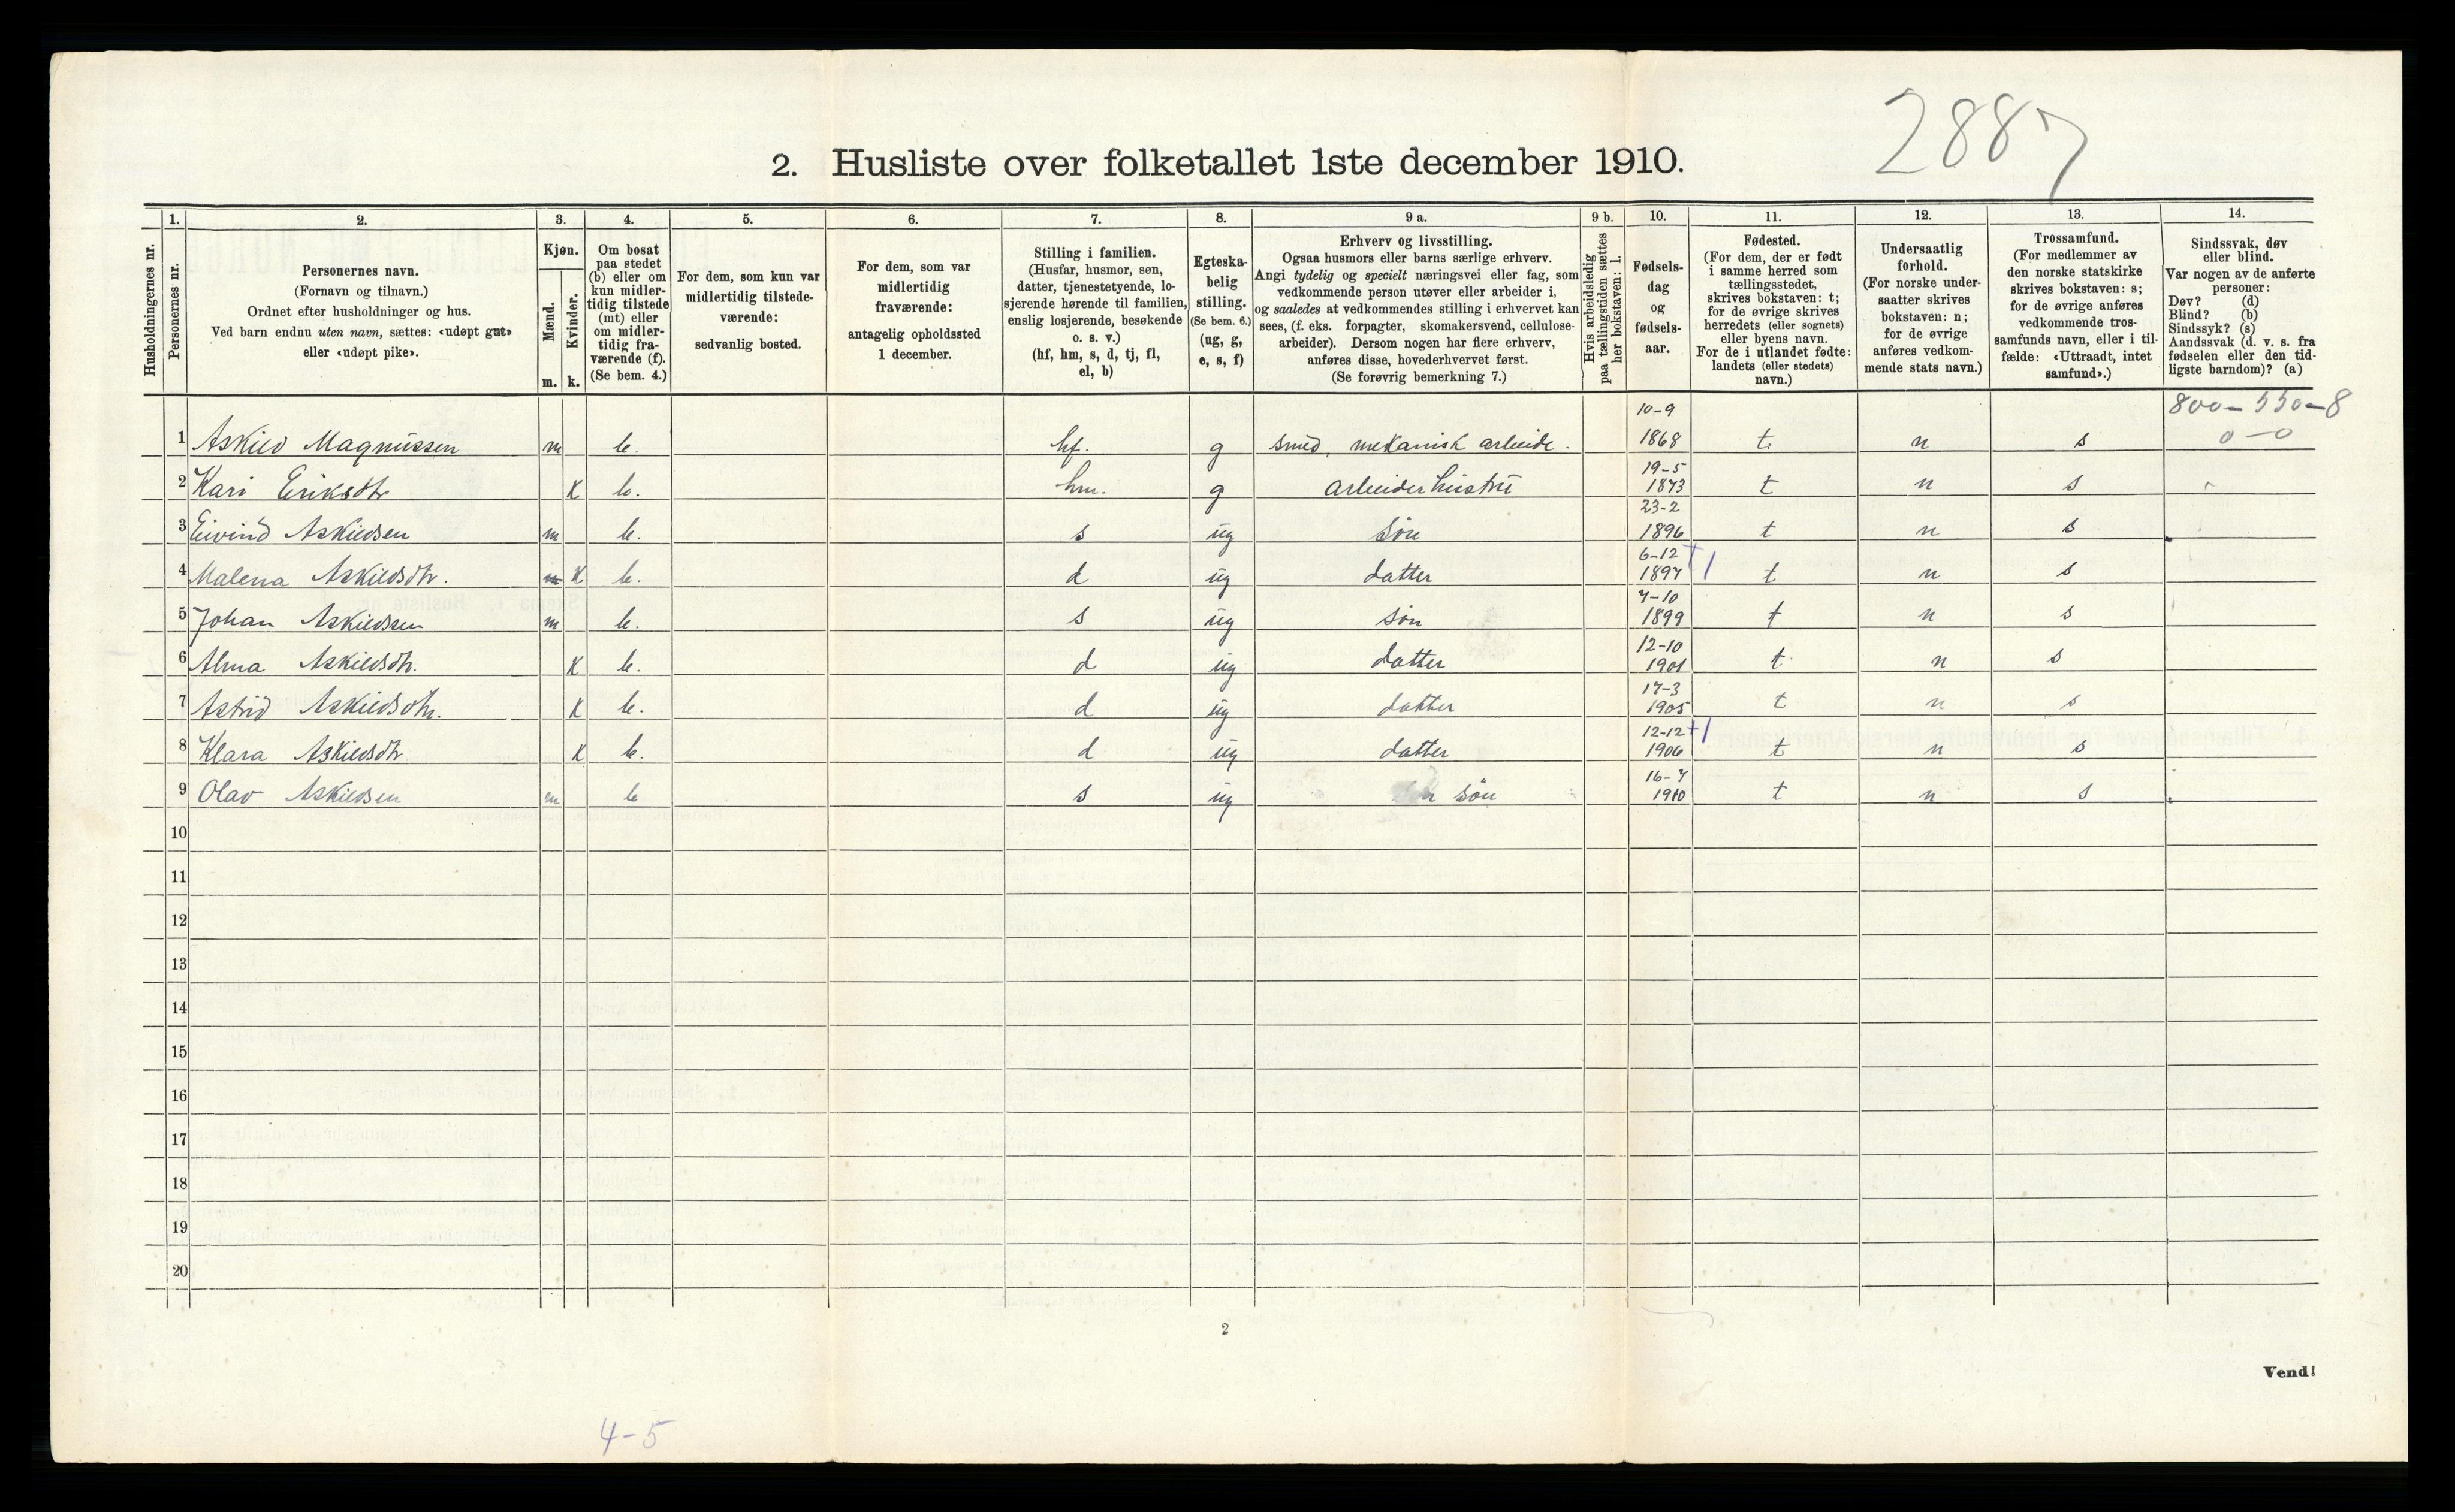 2887
2. Husliste over folketallet 1ste december 1910.
Husholdningernes nr.
1. Personernes nr.
2. Personernes navn. (Fornavn og tilnavn.) Ordnet efter husholdninger og hus. Ved barn endnu uten navn, sættes: «udøpt gut» eller «udøpt pike».
3. Kjøn. Mænd. m. Kvinder. k.
4. Om bosat paa stedet (b) eller om kun midlertidig tilstede (mt) eller om midlertidig fraværende (f). (Se bem. 4.)
5. For dem, som kun var midlertidig tilstedeværende: sedvanlig bosted.
6. For dem, som var midlertidig fraværende: antagelig opholdssted 1 december.
7. Stilling i familien. (Husfar, husmor, søn, datter, tjenestetyende, losjerende hørende til familien, enslig losjerende, besøkende o. s. v.) (hf, hm, s, d, tj, fl, el, b)
8. Egteskabelig stilling. (Se bem. 6.) (ug, g, e, s, f)
9 a. Erhverv og livsstilling. Ogsaa husmors eller barns særlige erhverv. Angi tydelig og specielt næringsvei eller fag, som vedkommende person utøver eller arbeider i, og saaledes at vedkommendes stilling i erhvervet kan sees, (f. eks. forpagter, skomakersvend, cellulosearbeider). Dersom nogen har flere erhverv, anføres disse, hovederhvervet først. (Se forøvrig bemerkning 7.)
9 b. Hvis arbeidsledig paa tællingstiden sættes her bokstaven: l.
10. Fødselsdag og fødselsaar.
11. Fødested. (For dem, der er født i samme herred som tællingsstedet, skrives bokstaven: t; for de øvrige skrives herredets (eller sognets) eller byens navn. For de i utlandet fødte: landets (eller stedets) navn.)
12. Undersaatlig forhold. (For norske undersaatter skrives bokstaven: n; for de øvrige anføres vedkommende stats navn.)
13. Trossamfund. (For medlemmer av den norske statskirke skrives bokstaven: s; for de øvrige anføres vedkommende trossamfunds navn, eller i tilfælde: «Uttraadt, intet samfund».)
14. Sindssvak, døv eller blind. Var nogen av de anførte personer: Døv? (d) Blind? (b) Sindssyk? (s) Aandssvak (d. v. s. fra fødselen eller den tidligste barndom)? (a)
800-550-8
0-0
1 Askild Magnussen m b. hf. g smed, mekanisk arbeide. 10-9 1868 t. n s
2 Kari Eriksdtr k b. hm. g arbeiderhustru 19-5 1873 t n s
3 Eivind Askildsen m b. s ug søn 23-2 1896 t n s
4 Malena Askildsdtr. m k b. d ug datter 6-12 1897 t n s
5 Johan Askildssen m b. s ug søn 7-10 1899 t n s
6 Alma Askildsdtr. k b. d ug datter 12-10 1901 t n s
7 Astrid Askildsdtr. k b. d ug datter 17-3 1905 t n s
8 Klara Askildsdtr. k b. d ug datter 12-12 1906 t n s
9 Olav Askildsen m b s ug søn 16-7 1910 t n s
10
11
12
13
14
15
16
17
18
19
20
2
Vend!
4-5